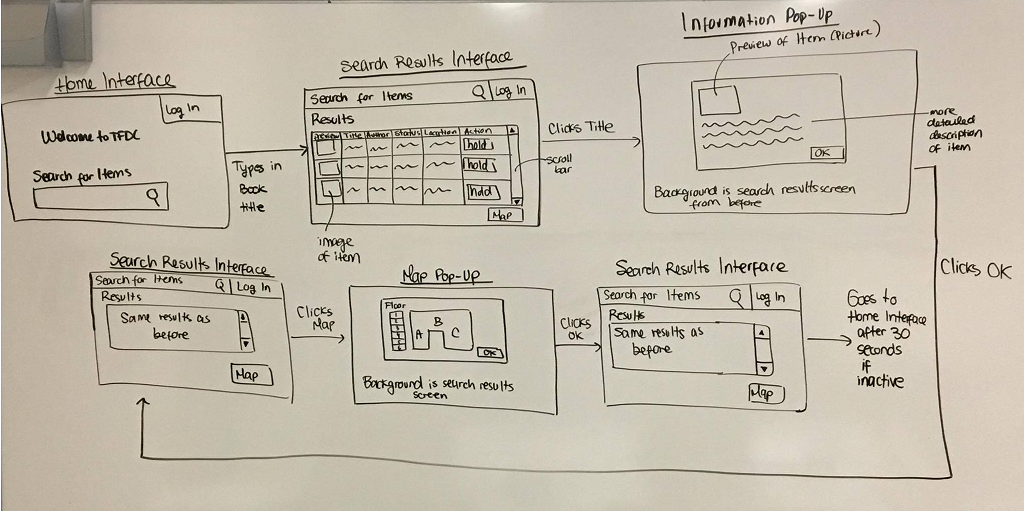 Home Interface
Log In
Welcome to TFDL
Search for Items
Types in
Book
title
Search Results Interface
Search for Items
Log In
Results
Preview Title Author Status Location Action
hold
hold
hold
Map
scroll
bar
image
of item
Clicks Title
Information Pop-Up
Preview of Item (Picture)
OK
Background is search results screen
from before
more
detailed
description
of item
Clicks OK
Search Results Interface
Search for Items
Log In
Results
Same results as
before
Map
Clicks
Map
Map Pop-Up
Floor
A
B
C
OK
Background is search results
screen
Clicks
OK
Search Results Interface
Search for Items
Log In
Results
Same results as
before
Map
Goes to
Home Interface
after 30
seconds
if
inactive